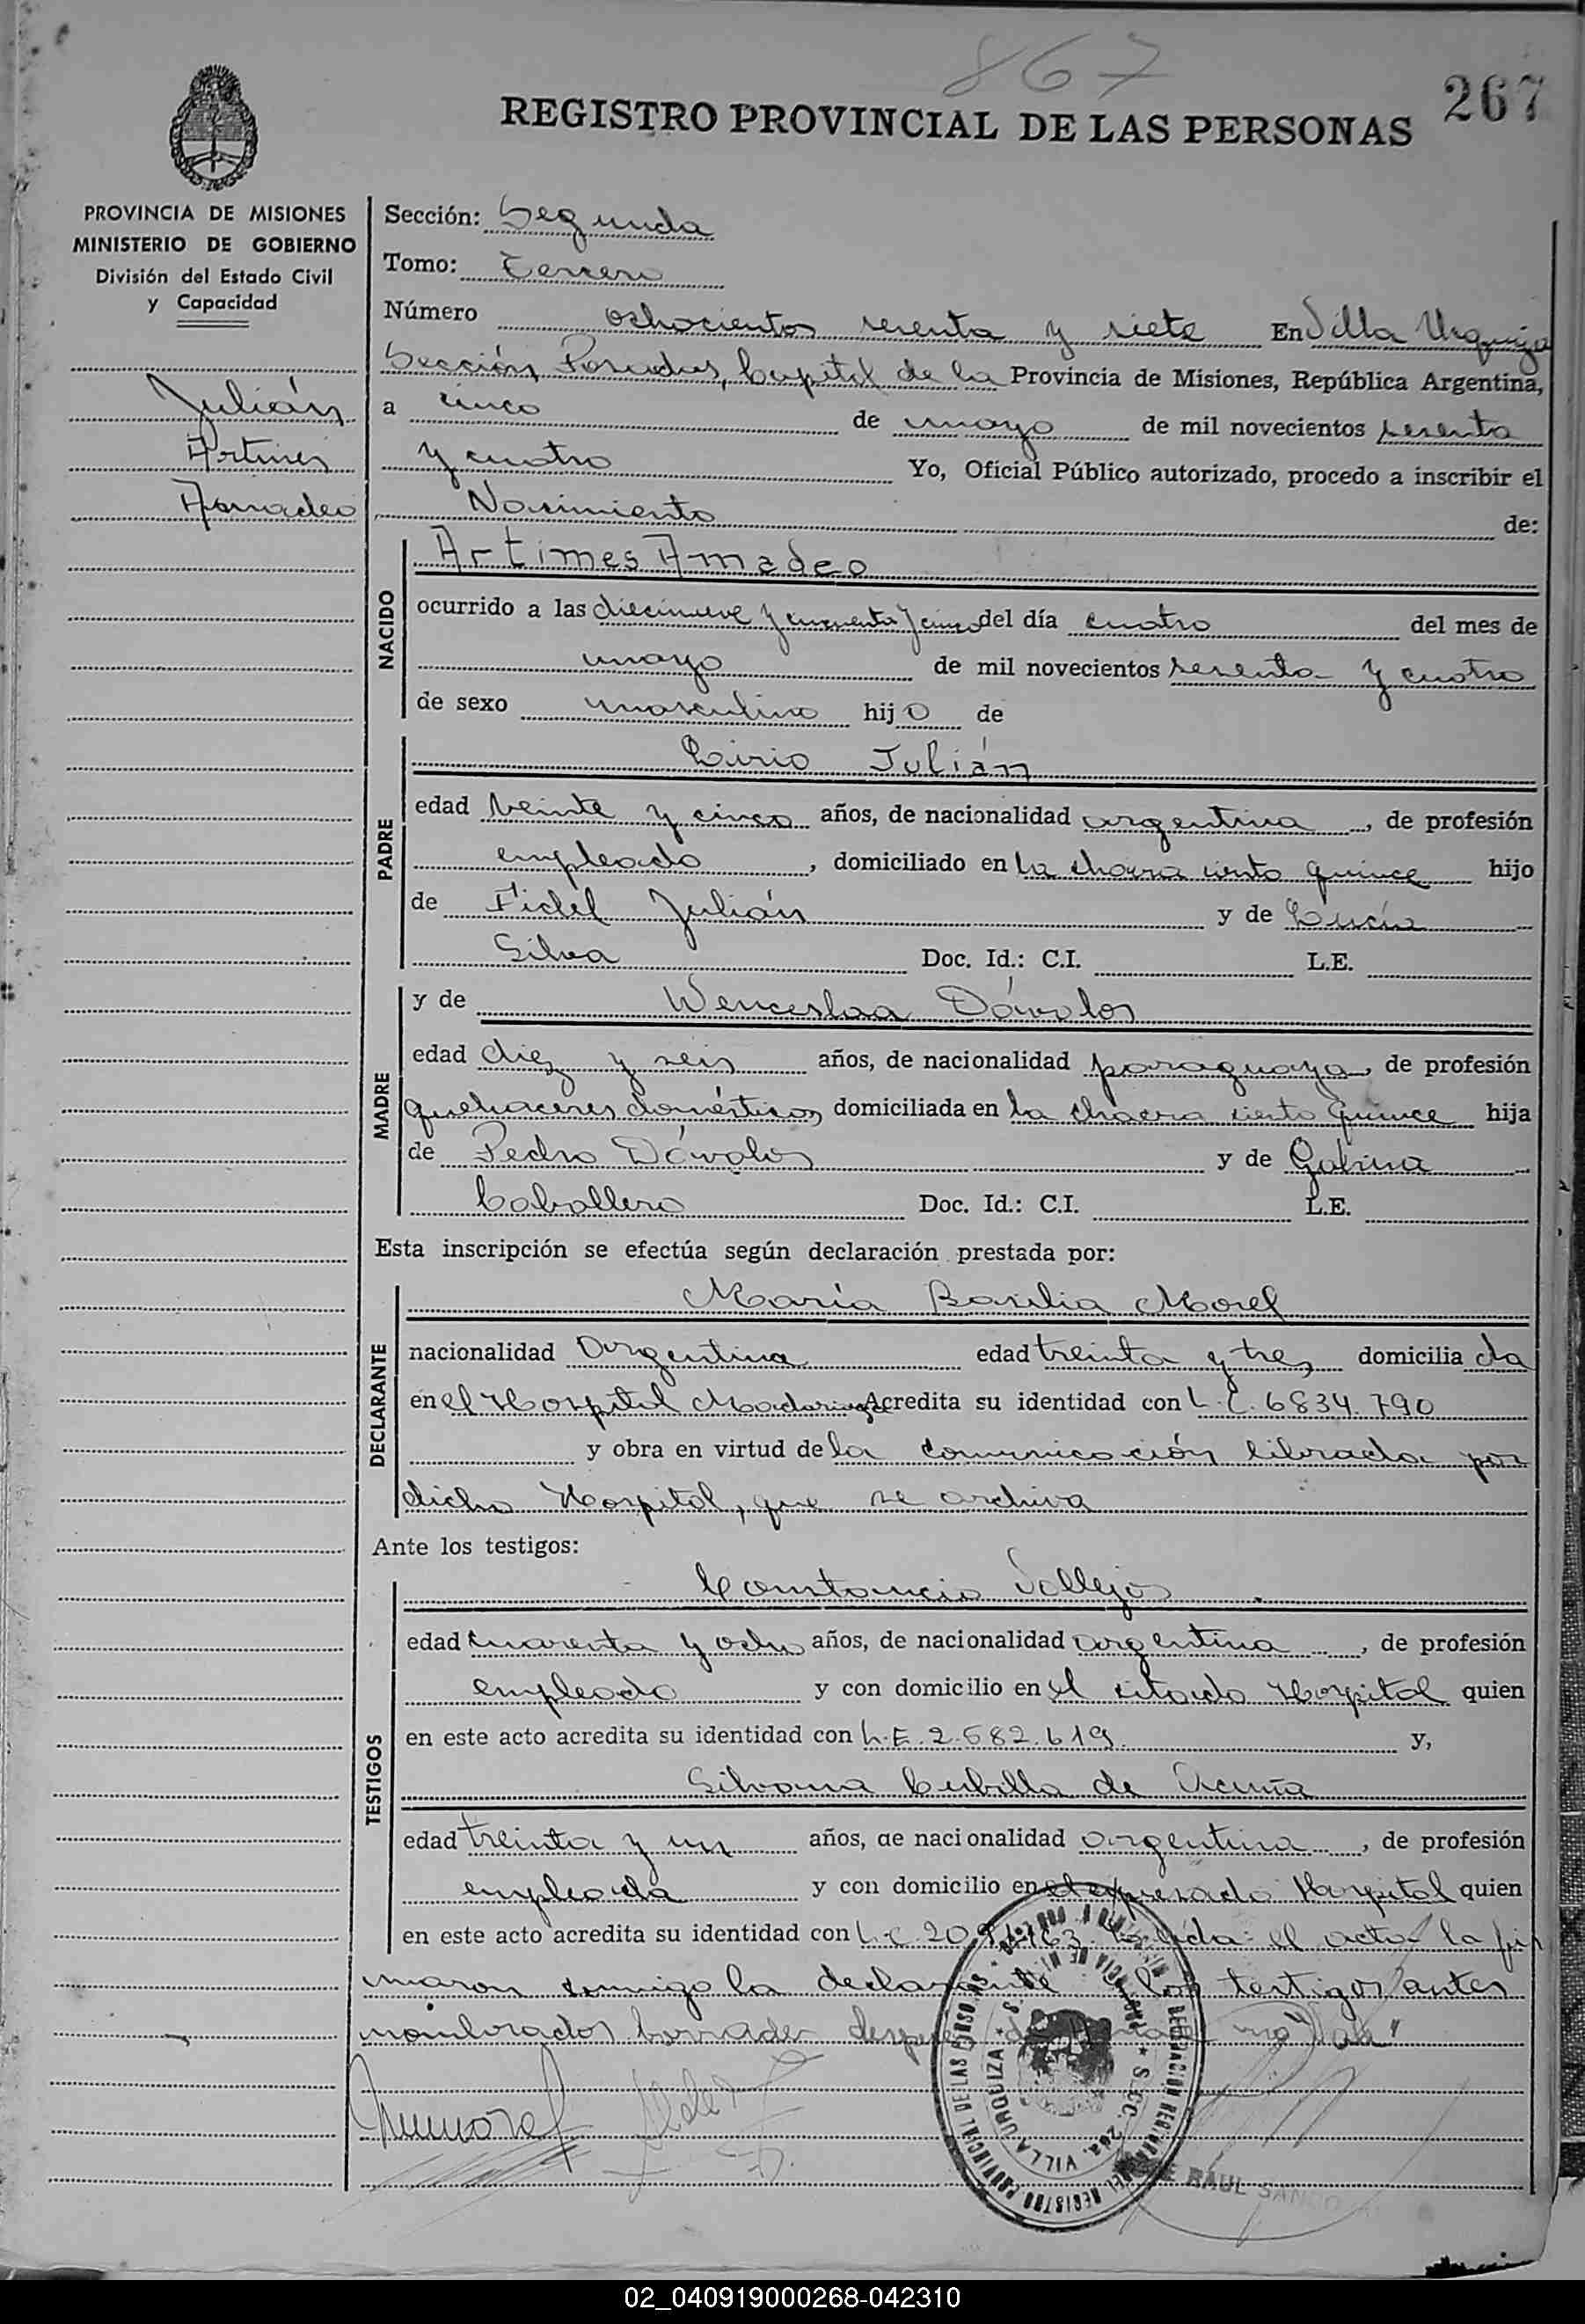 867
267
REGISTRO PROVINCIAL DE LAS PERSONAS
PROVINCIA DE MISIONES
MINISTERIO DE GOBIERNO
División del Estado Civil
y Capacidad
Julián
Artimes
Amadeo
Sección: Segunda
Tomo: Tercero
Número ochocientos sesenta y siete En Villa Urquiza
Sección Posadas, Capital de la Provincia de Misiones, República Argentina,
a cinco de mayo de mil novecientos sesenta
y cuatro Yo, Oficial Público autorizado, procedo a inscribir el
Nacimiento de:
NACIDO
Artimes Amadeo
ocurrido a las diecinueve y cincuenta y cinco del día cuatro del mes de
mayo de mil novecientos sesenta y cuatro
de sexo masculino hijo de
PADRE
Cirio Julián
edad veinte y cinco años, de nacionalidad argentina, de profesión
empleado, domiciliado en la chacra ciento quince hijo
de Fidel Julián y de Lucía
Silva Doc. Id.: C.I. L.E.
MADRE
y de Wenceslaa Dávalos
edad diez y seis años, de nacionalidad paraguaya, de profesión
quehaceres domésticos, domiciliada en la chacra ciento quince hija
de Pedro Dávalos y de Gabina
Caballero Doc. Id.: C.I. L.E.
Esta inscripción se efectúa según declaración prestada por:
DECLARANTE
María Basilia Morel
nacionalidad Argentina edad treinta y tres domiciliada
en el Hospital Madariaga Acredita su identidad con L.C. 6834.790
y obra en virtud de la comunicación librada por
dicho Hospital, que se archiva
Ante los testigos:
TESTIGOS
Constancio Vallejos
edad cuarenta y ocho años, de nacionalidad argentina, de profesión
empleado y con domicilio en el citado Hospital quien
en este acto acredita su identidad con L.E. 2.582.619. y,
Silvana Cubilla de Acuña
edad treinta y un años, de nacionalidad argentina, de profesión
empleada y con domicilio en el expresado Hospital quien
en este acto acredita su identidad con L.C. 20 763. Leída el acta la fir
maron conmigo la declarante los testigos antes
nombrados borrador
VILLA URQUIZA
RAUL
02_040919000268-042310